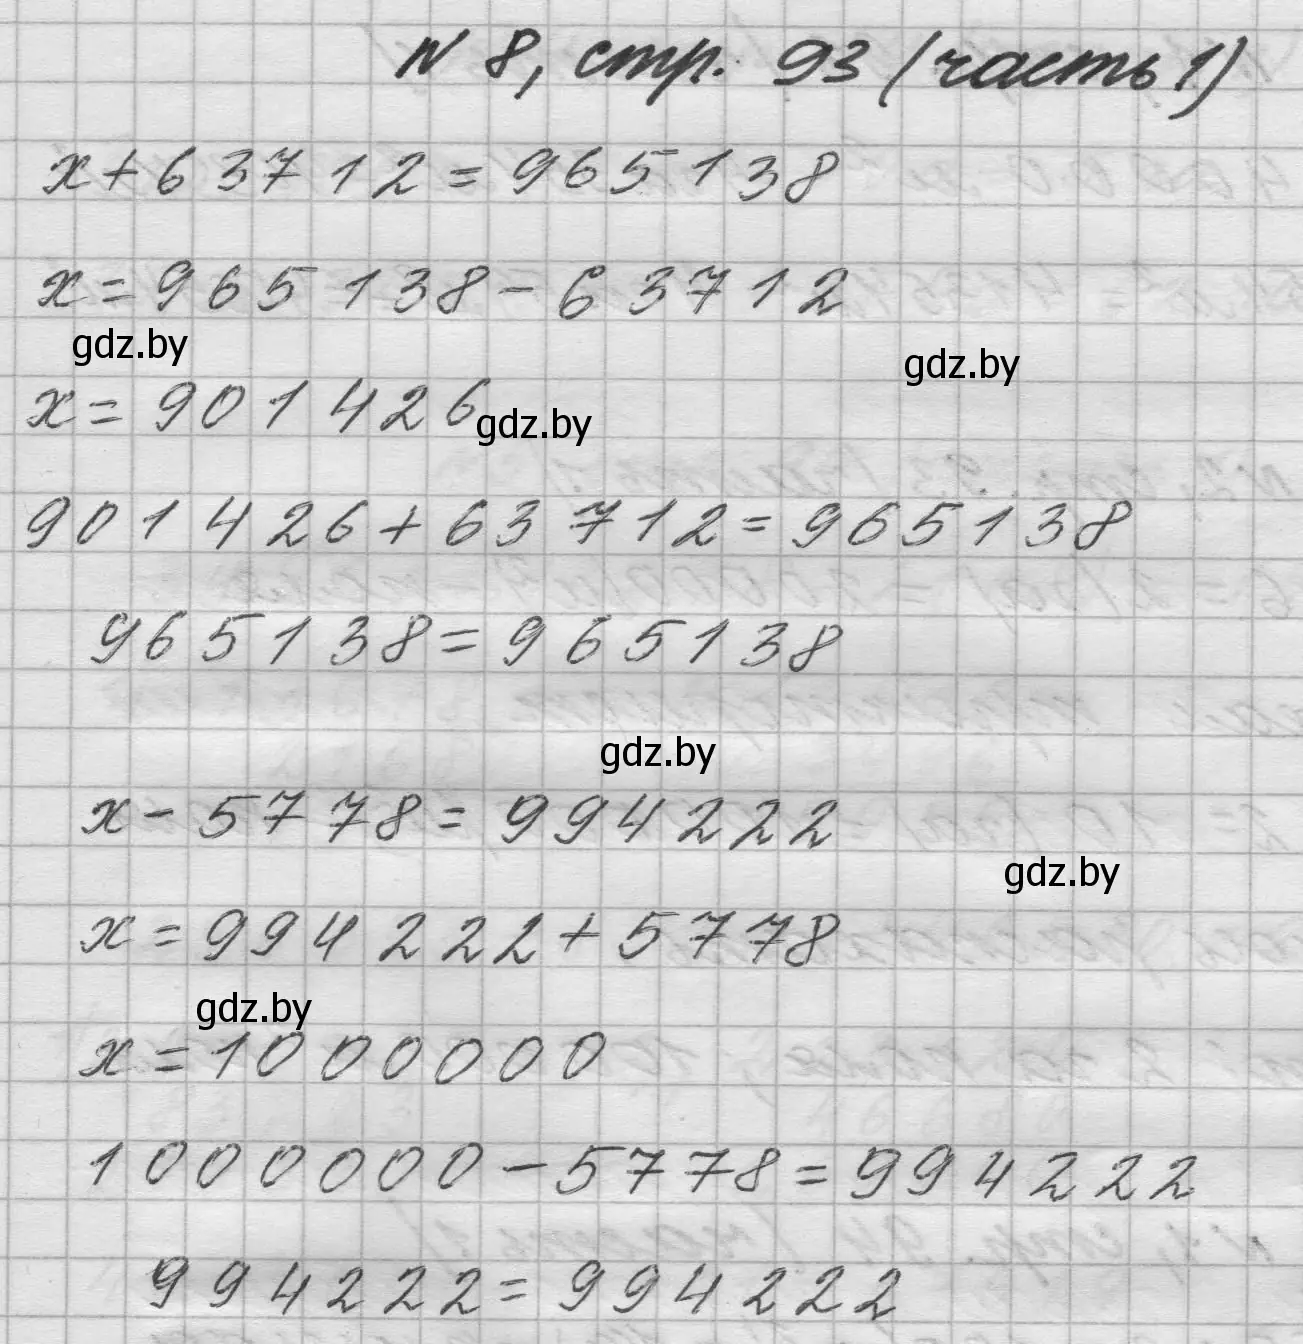 N 8, стр. 93 (часть 1)
x+63712=965138
x=965138-63712
gdz.by
gdz.by
x=901426
gdz.by
901426+63712=965138
965138=965138
gdz.by
x-5778=994222
gdz.by
x=994222+5778
gdz.by
x=1000000
1000000-5778=994222
994222=994222